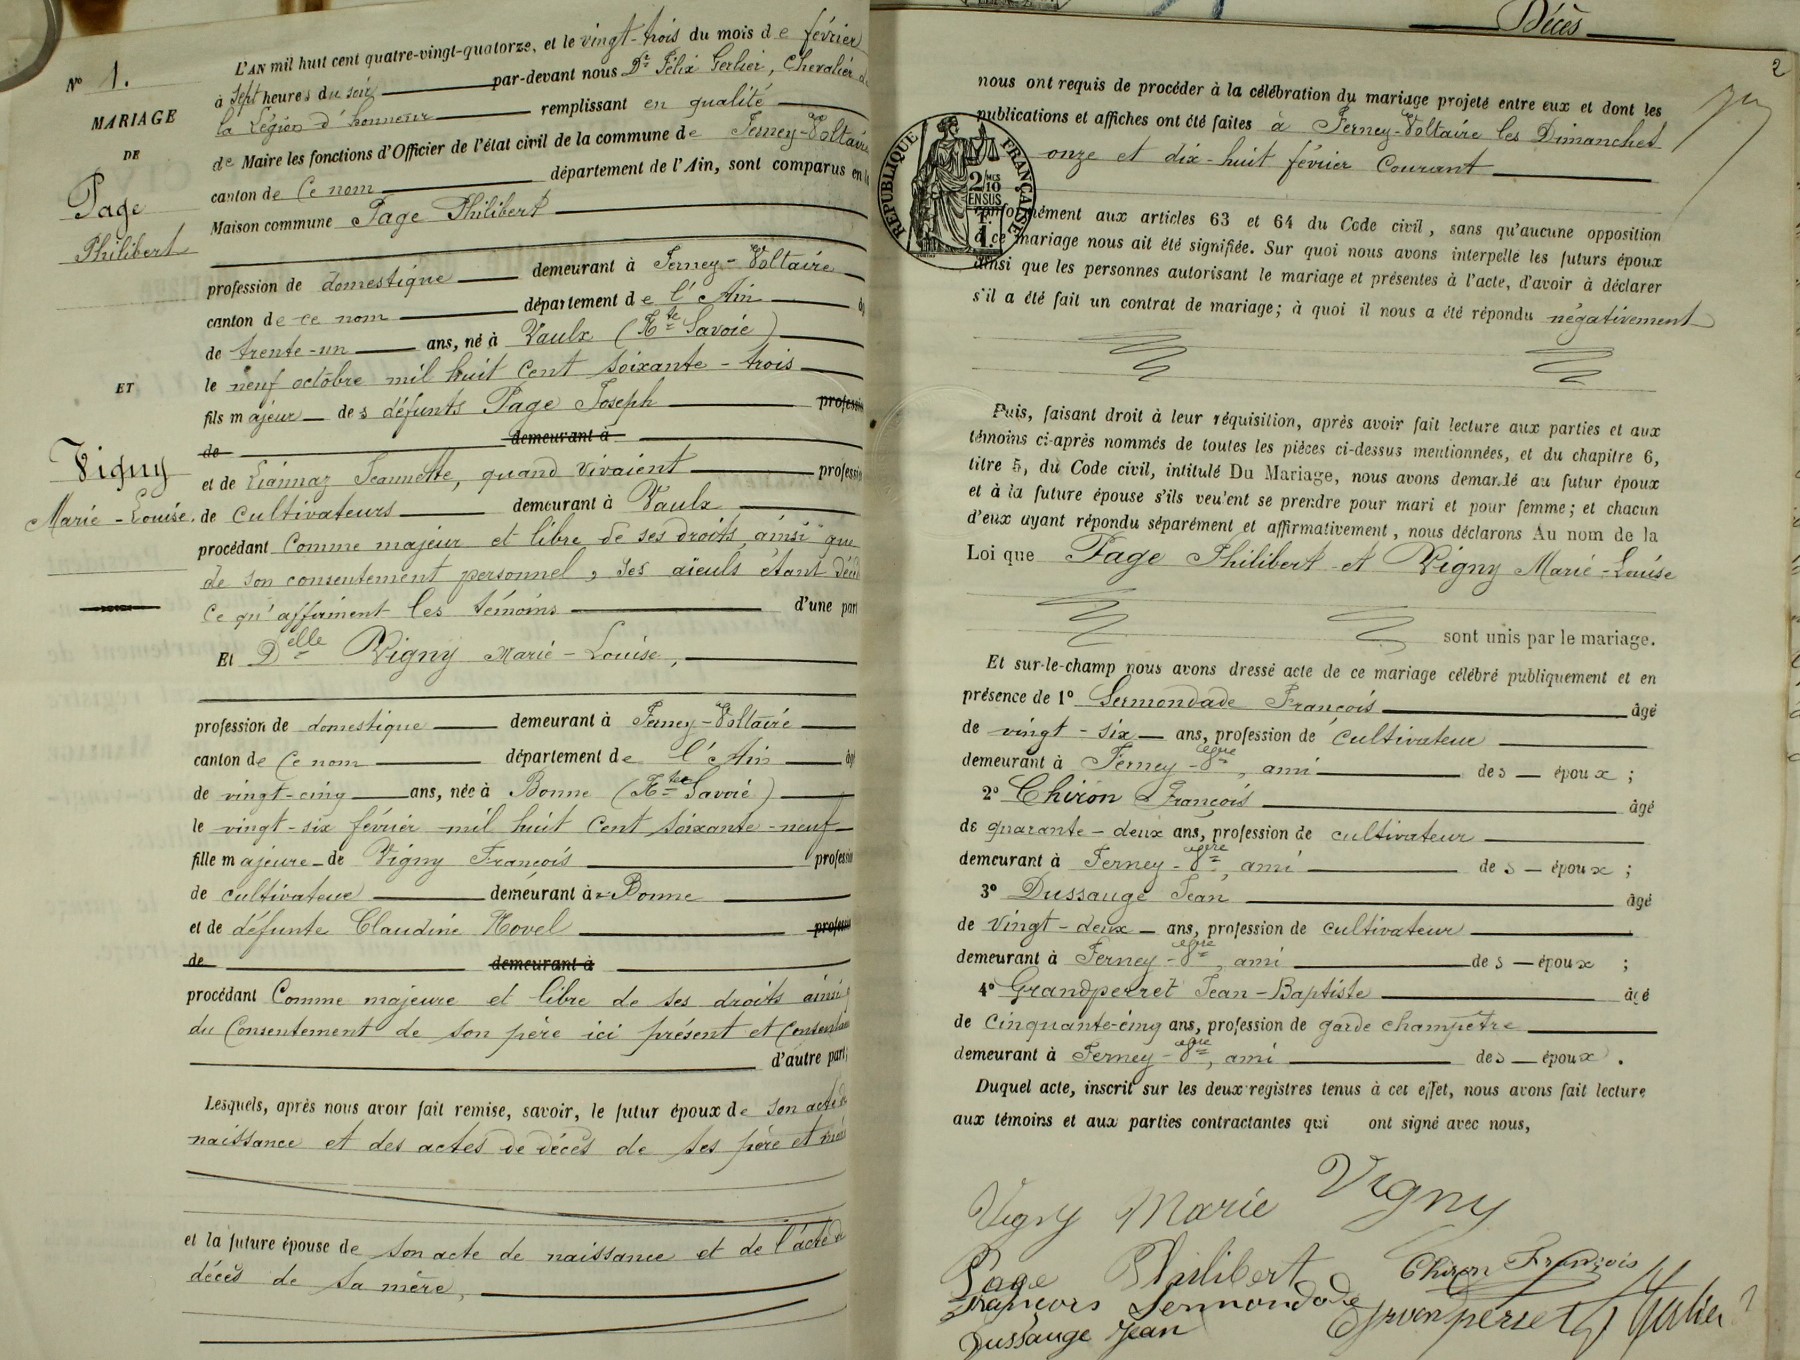 N° 1.
MARIAGE
DE
Page
Philibert
ET
Vigny
Marie-Louise.
L'AN mil huit cent quatre-vingt-quatorze, et le vingt-trois du mois de février
à sept heures du soir par-devant nous Dr Félix Gerlier, Chevalier de
la Légion d'honneur remplissant en qualité
de Maire les fonctions d'Officier de l'état civil de la commune de Ferney-Voltaire
canton de Ce nom département de l'Ain, sont comparus en la
Maison commune Page Philibert
profession de domestique demeurant à Ferney-Voltaire
canton de ce nom département de l'Ain âgé
de trente-un ans, né à Vaulx (Hte Savoie)
le neuf octobre mil huit cent soixante-trois
fils majeur des défunts Page Joseph profession
de demeurant à
et de Jeannette, quand vivaient profession
de cultivateurs demeurant à Vaulx
procédant Comme majeur et libre de ses droits ainsi que
de son consentement personnel, ses aïeuls étant décédés
ce qu'affirment les témoins d'une part
Et Delle Vigny Marie-Louise,
profession de domestique demeurant à Ferney-Voltaire
canton de Ce nom département de l'Ain âgé
de vingt-cinq ans, née à Bonne (Hte Savoie)
le vingt-six février mil huit cent soixante-neuf
fille majeure de Vigny François profession
de cultivateur demeurant à Bonne
et de défunte Claudine Hovel profession
de demeurant à
procédant Comme majeure et libre de ses droits ainsi
du Consentement de son père ici présent et Consentant
d'autre part;
Lesquels, après nous avoir fait remise, savoir, le futur époux de son acte de
naissance et des actes de décès de ses père et mère
et la future épouse de son acte de naissance et de l'acte de
décès de sa mère,
Décès
2
nous ont requis de procéder à la célébration du mariage projeté entre eux et dont les
publications et affiches ont été faites à Ferney-Voltaire les Dimanches
onze et dix-huit février Courant
RÉPUBLIQUE FRANÇAISE
2/10 EN SUS
conformément aux articles 63 et 64 du Code civil, sans qu'aucune opposition
à ce mariage nous ait été signifiée. Sur quoi nous avons interpellé les futurs époux
ainsi que les personnes autorisant le mariage et présentes à l'acte, d'avoir à déclarer
s'il a été fait un contrat de mariage; à quoi il nous a été répondu négativement
Puis, faisant droit à leur réquisition, après avoir fait lecture aux parties et aux
témoins ci-après nommés de toutes les pièces ci-dessus mentionnées, et du chapitre 6,
titre 5, du Code civil, intitulé Du Mariage, nous avons demandé au futur époux
et à la future épouse s'ils veulent se prendre pour mari et pour femme; et chacun
d'eux ayant répondu séparément et affirmativement, nous déclarons Au nom de la
Loi que Page Philibert et Vigny Marie-Louise
sont unis par le mariage.
Et sur-le-champ nous avons dressé acte de ce mariage célébré publiquement et en
présence de 1° Sermondade François âgé
de vingt-six ans, profession de cultivateur
demeurant à Ferney-, ami des époux;
2° Chiron François âgé
de quarante-deux ans, profession de cultivateur
demeurant à Ferney-, ami des époux;
3° Dussauge Jean âgé
de vingt-deux ans, profession de cultivateur
demeurant à Ferney-, ami des époux;
4° Grandperret Jean-Baptiste âgé
de cinquante-cinq ans, profession de garde champêtre
demeurant à Ferney-, ami des époux.
Duquel acte, inscrit sur les deux registres tenus à cet effet, nous avons fait lecture
aux témoins et aux parties contractantes qui ont signé avec nous,
Vigny Marie Vigny
Page Philibert Chiron François
François Sermondade Grandperret Gerlier
Dussauge Jean